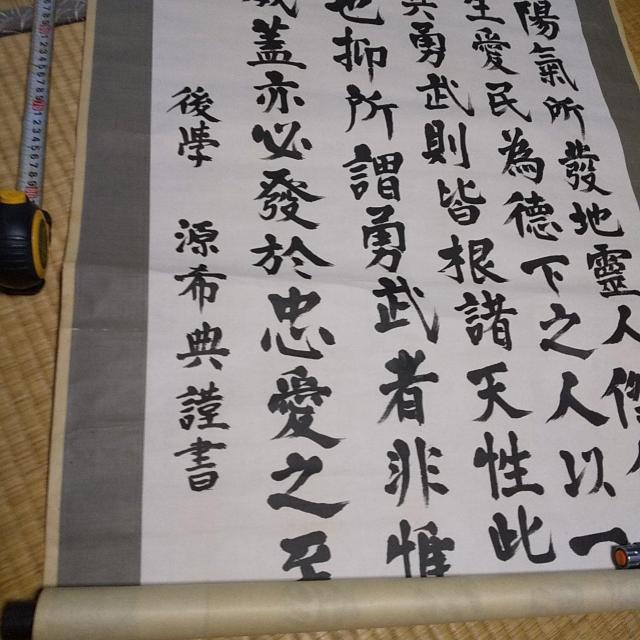 陽氣所發地靈人傑
生愛民為德下之人以一
與勇武則皆根諸天性此
也抑所謂勇武者非惟
威蓋亦必發於忠愛之至
後學 源希典謹書